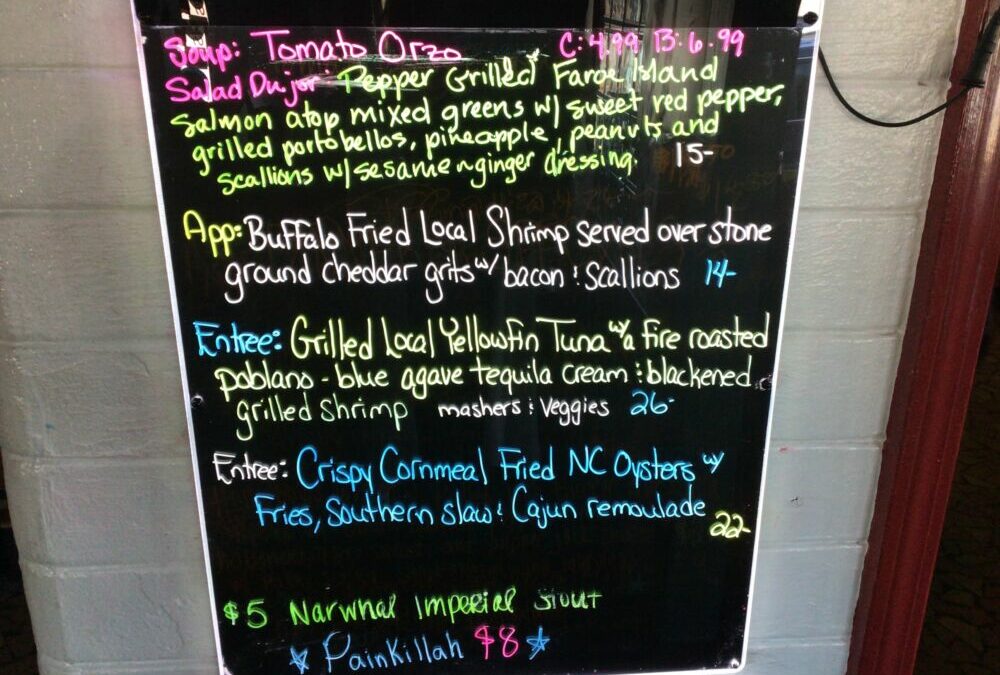 Soup: Tomato Orzo C: 4.99 B: 6.99
Salad Dujor: Pepper Grilled Faroe Island
Salmon atop mixed greens w/ sweet red pepper,
grilled portobellos, pineapple, peanuts and
scallions w/ sesame-ginger dressing. 15-
App: Buffalo Fried Local Shrimp served over stone
ground cheddar grits w/ bacon & Scallions 14-
Entree: Grilled Local Yellowfin Tuna w/ a fire roasted
poblano - blue agave tequila cream & blackened
grilled shrimp mashers & Veggies 26-
Entree: Crispy Cornmeal Fried NC Oysters w/
Fries, Southern slaw & Cajun remoulade 22-
$5 Narwhal Imperial Stout
PainKillah $8